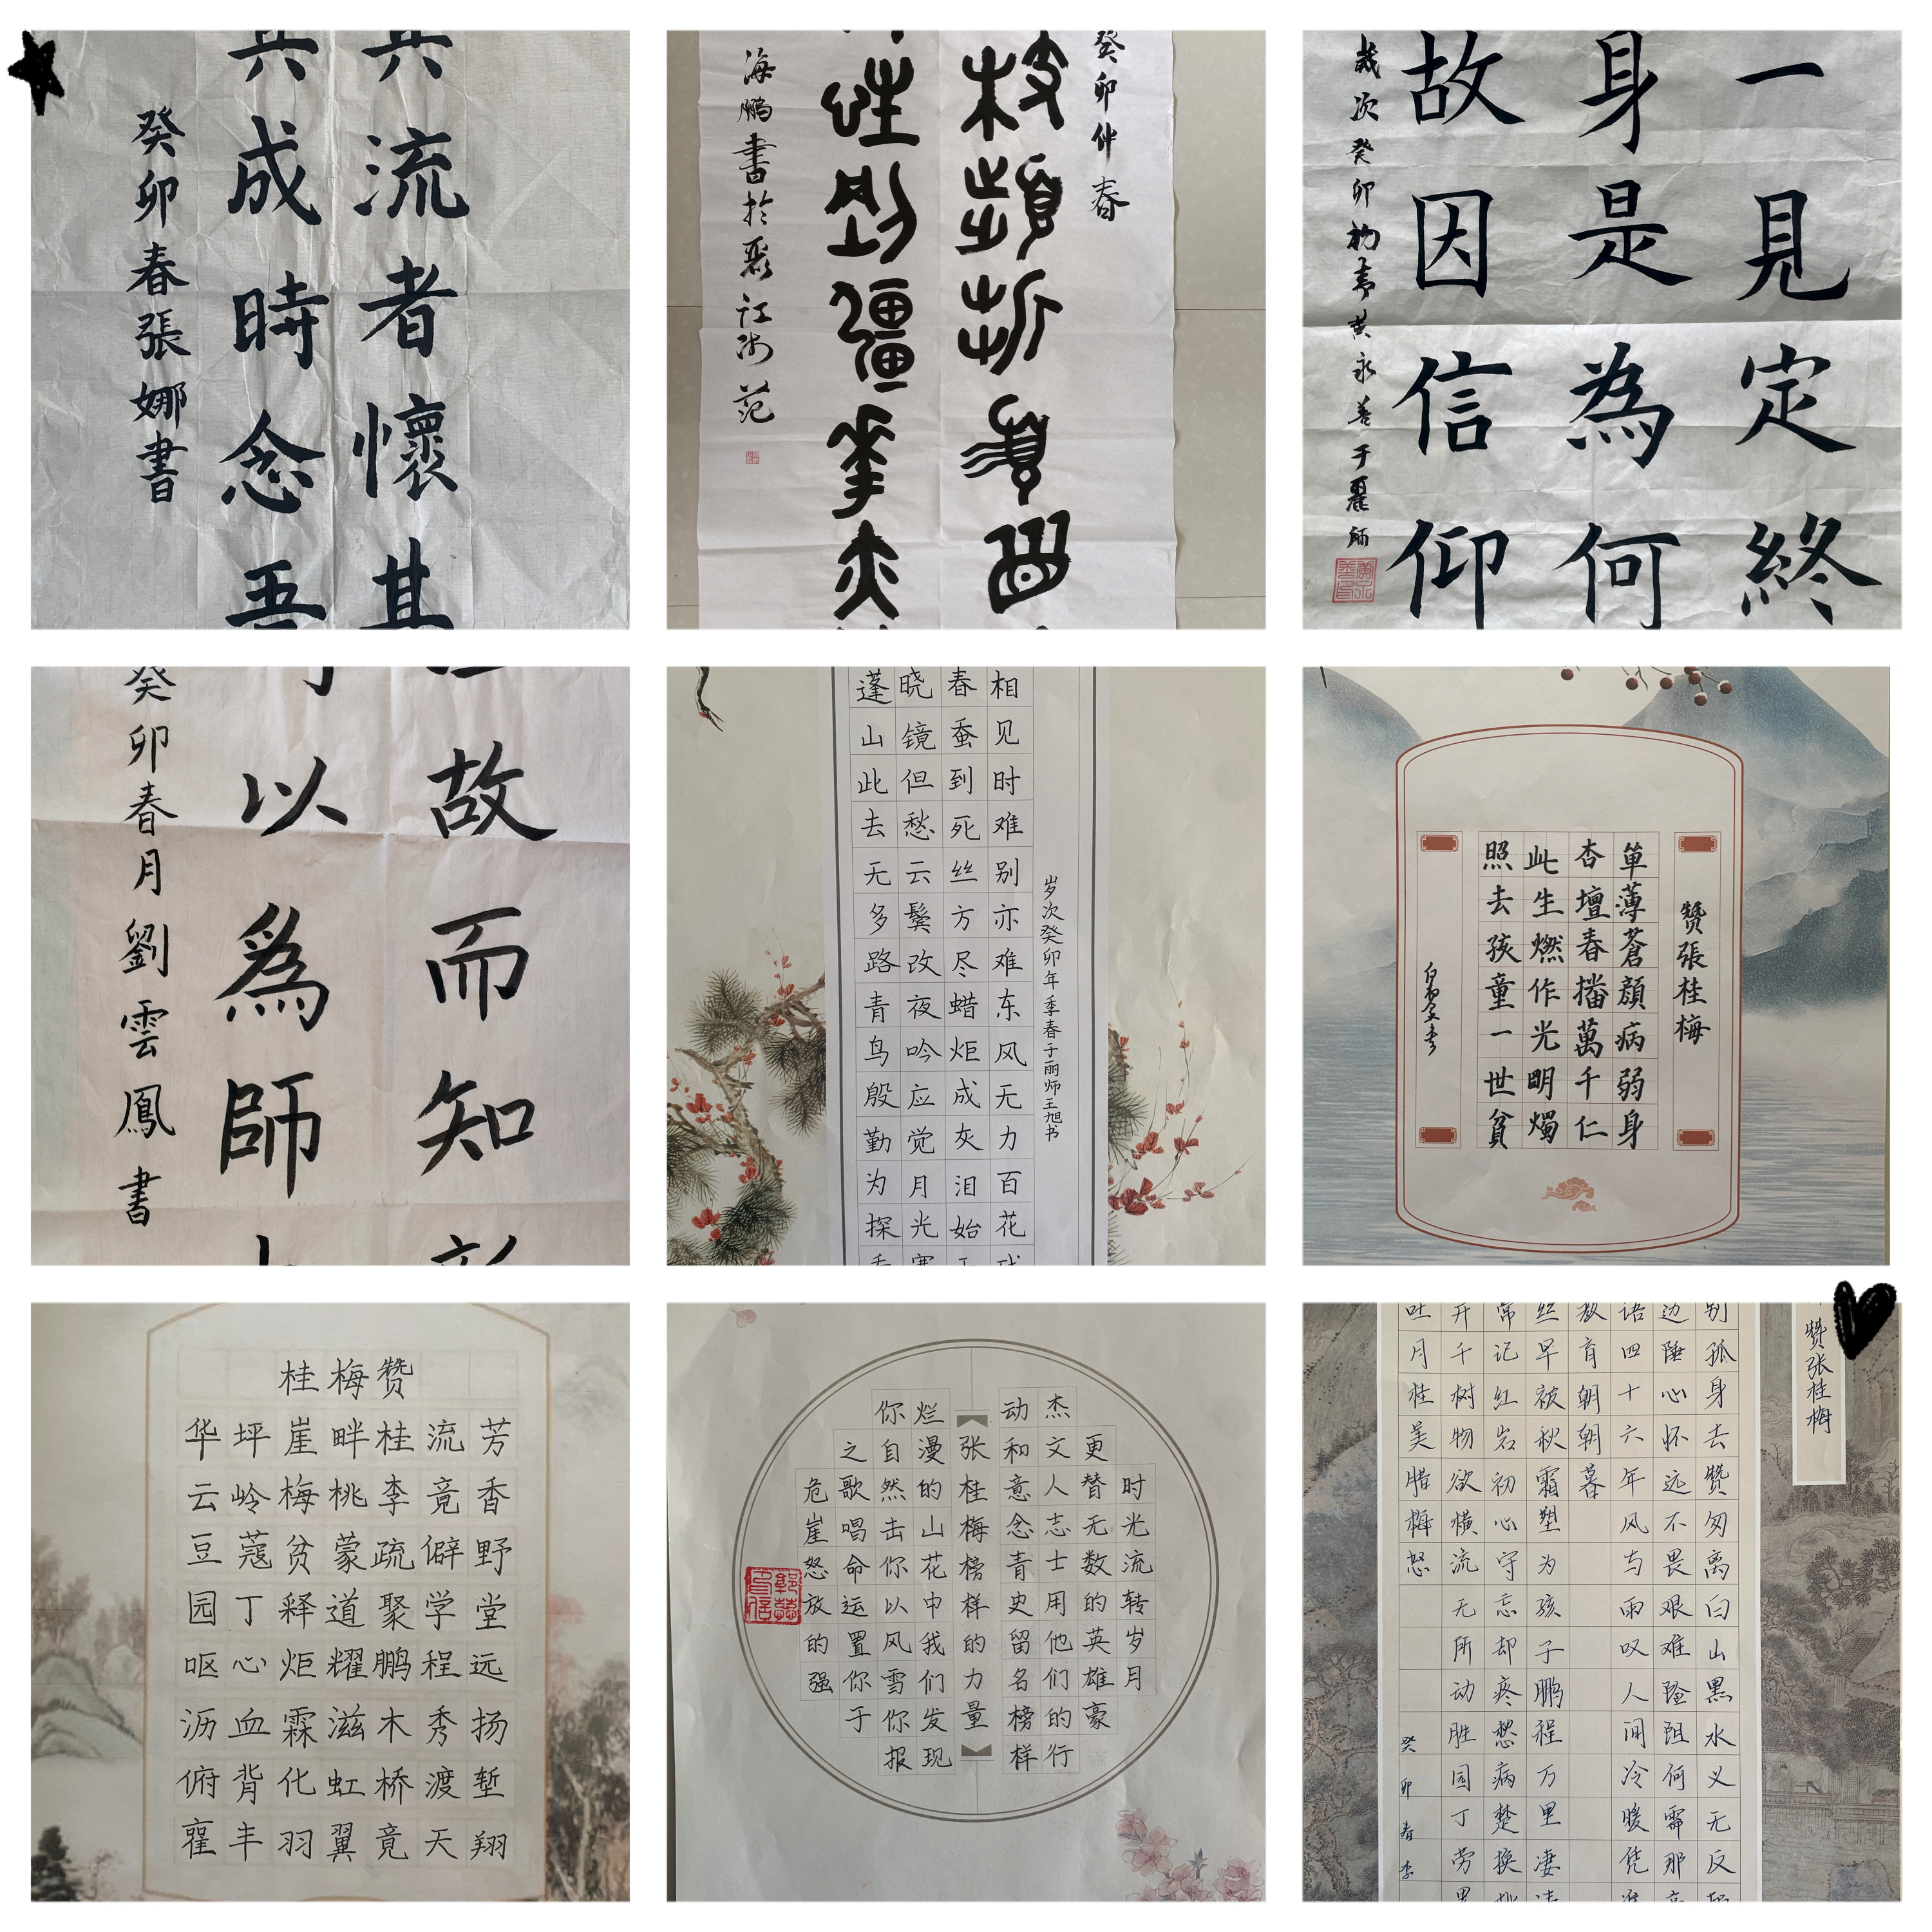 流者懷其
成時念吾
癸卯春張娜書
癸卯仲春
海鹏書於
一見定終
身是為何
故因信仰
歲次癸卯初春黄永善于麗師
故而知
以為師
癸卯春月劉雲鳳書
岁次癸卯年季春于丽师王旭书
相见时难别亦难东风无力百花
春蚕到死丝方尽蜡炬成灰泪始
晓镜但愁云鬓改夜吟应觉月光
蓬山此去无多路青鸟殷勤为探
贊張桂梅
单薄蒼顏病弱身
杏壇春播萬千仁
此生燃作光明燭
照去孩童一世貧
桂梅赞
华坪崖畔桂流芳
云岭梅桃李竟香
豆蔻贫蒙疏僻野
园丁释道聚学堂
呕心炬耀鹏程远
沥血霖滋木秀扬
俯背化虹桥渡堑
丰羽翼竟天翔
时光流转岁月
更替无数的英雄豪
杰文人志士用他们的行
动和意念青史留名榜样
张桂梅榜样的力量
烂漫的山花中我们发现
你自然击你以风雪你报
之歌唱命运置你于
危崖怒放的强
赞张桂梅
别孤身去赞匆离白山黑水义无反
边陲心怀远不畏艰难险阻何需那
语四十六年风与雨叹人间冷暖凭
教育朝朝暮
丝早被秋霜塑为孩子鹏程万里凄
常记红岩初心守忘却疼愁病楚换
开千树物欲横流无所动胜园丁劳
吐月桂美腊梅怒
癸卯春李